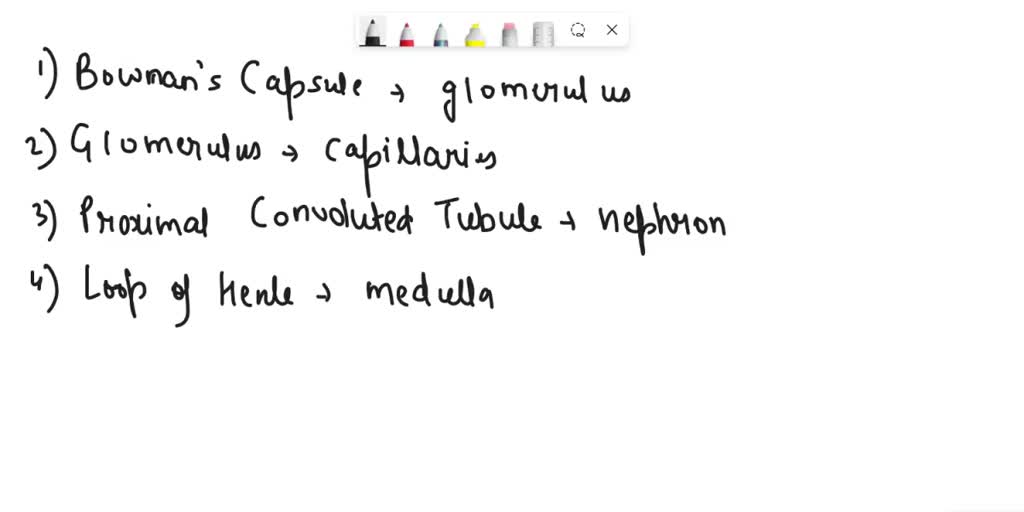 1) Bowman's Capsule → glomerulus
2) Glomerulus → Capillaries
3) Proximal Convoluted Tubule → nephron
4) Loop of Henle → medulla